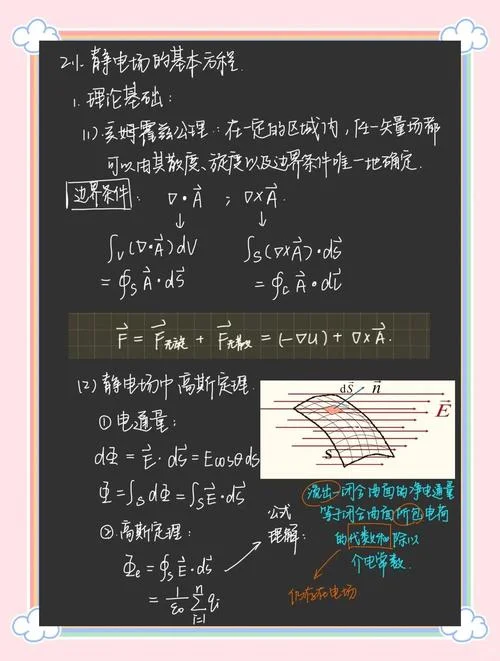 2.1. 静电场的基本方程.
1. 理论基础:
(1) 亥姆霍兹公理: 在一定的区域内, 任一矢量场都
可以由其散度、旋度以及边界条件唯一地确定.
边界条件: ∇·A⃗ ; ∇×A⃗
↓ ↓
∫v(∇·A⃗)dV ∫s(∇×A⃗)·ds⃗
=∮s A⃗·ds⃗ =∮c A⃗·dl
F⃗ = F⃗无旋 + F⃗无散 = (-∇u) + ∇×A⃗.
(2) 静电场中高斯定理.
① 电通量:
dΦ = E⃗·ds⃗ = Ecosθds
Φ = ∫s dΦ = ∫s E⃗·ds⃗
ds⃗ n⃗
E⃗
S
② 高斯定理:
Φe = ∮s E⃗·ds⃗
= 1/ε₀ ∑ⁿᵢ₌₁ qᵢ
公式
理解:
流出一闭合曲面的净电通量
等于闭合曲面所包电荷
的代数和除以
介电常数.
仍存在电场